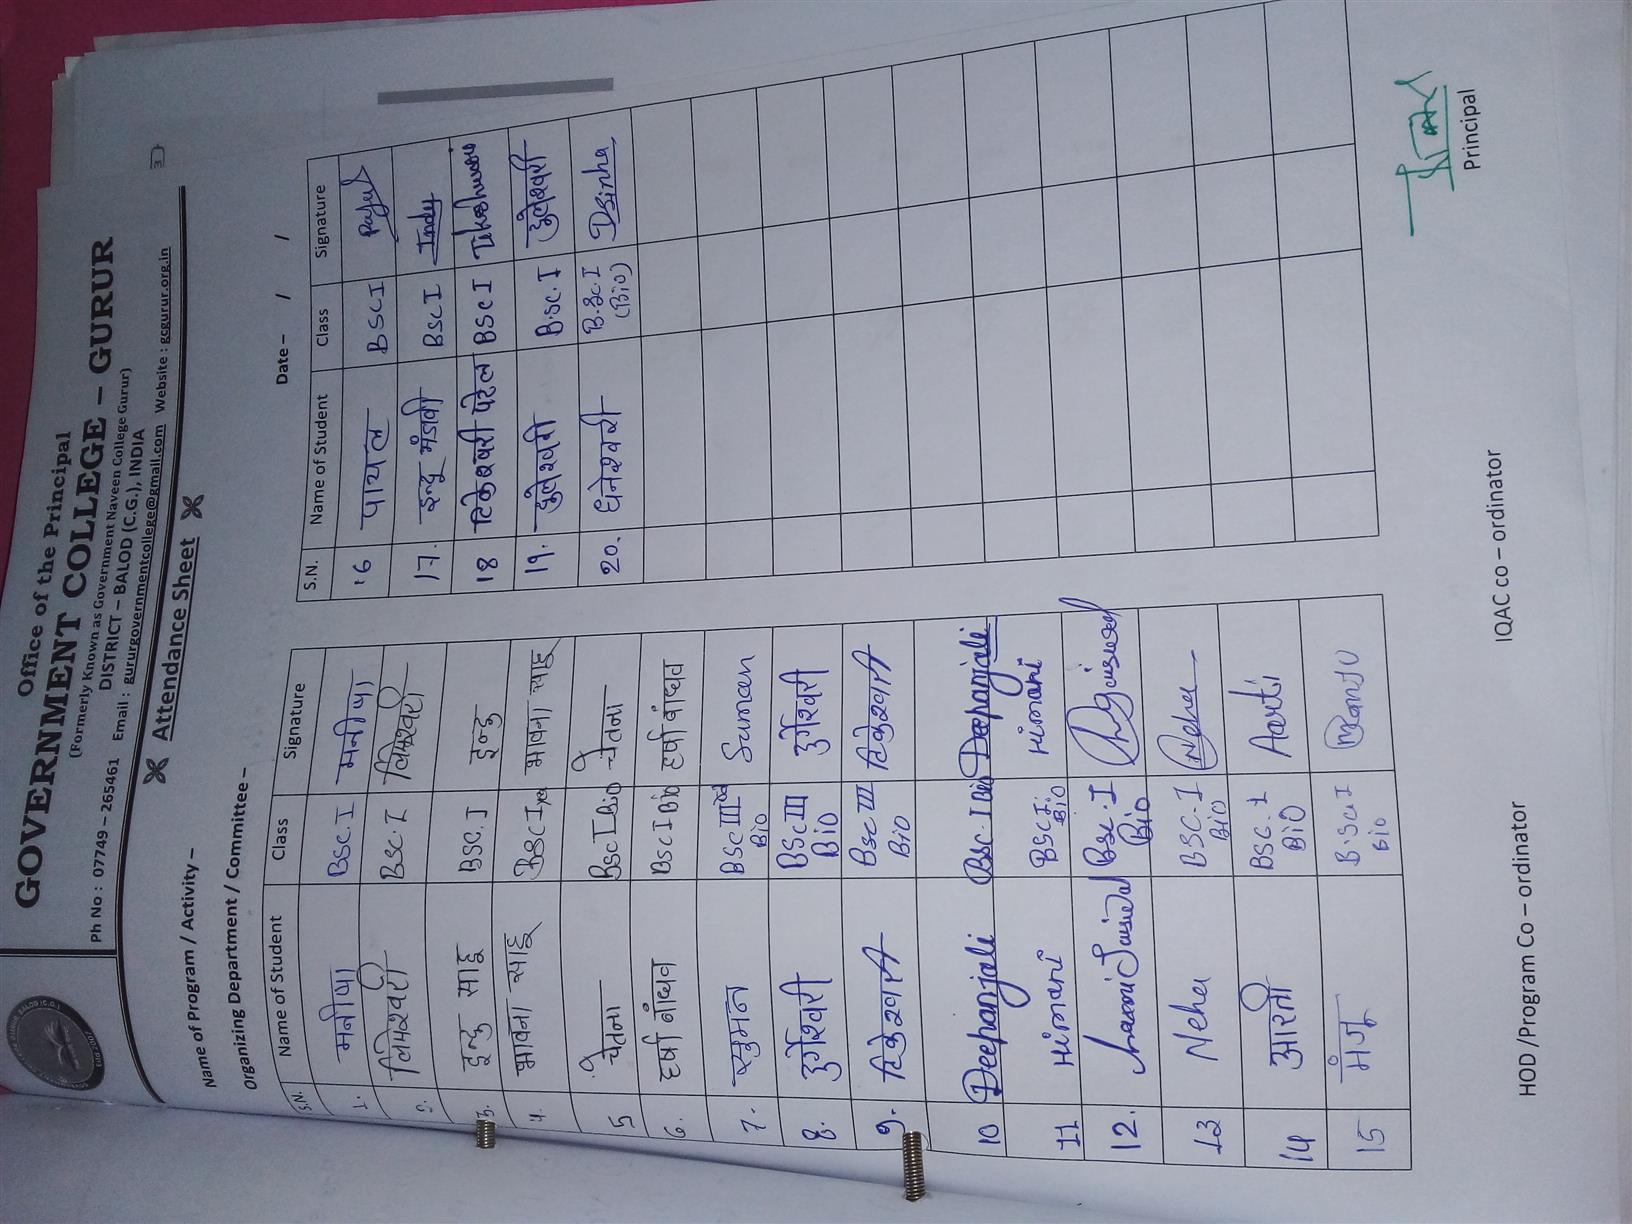 Office of the Principal
GOVERNMENT COLLEGE – GURUR
(Formerly Known as Government Naveen College Gurur)
DISTRICT – BALOD (C.G.), INDIA
Ph No : 07749 – 265461 Email : gururgovernmentcollege@gmail.com Website : gcgurur.org.in
Attendance Sheet
Name of Program / Activity –
Date – / /
Organizing Department / Committee –
S.N. Name of Student Class Signature
1. मनीषा BSC.I मनीषा
2. लिमेश्वरी BSC.I लिमेश्वरी
3. इन्दु साहू BSC.I इन्दु
4. भावना साहू BSC I भावना साहू
5 चेतना BSC I Bio चेतना
6. हर्षा बांधव BSC I Bio हर्षा बांधव
7. सुमन BSC III Bio Suman
8. दुर्गेश्वरी BSC III Bio दुर्गेश्वरी
9. टिकेश्वरी BSC III Bio टिकेश्वरी
10 Deepanjali BSC.I Bio Deepanjali
11 Himani BSC I. Bio Himani
12. BSC.I Bio
13 Neha BSC.I Bio Neha
14 आरती BSC.I BiO Aarti
15 मंजू B.SC I Bio Manju
S.N. Name of Student Class Signature
16 पायल BSC I Payal
17. इन्दू मंडावी BSC I Indu
18 टिकेश्वरी पटेल BSC I Tikeshwari
19. डुलेश्वरी B.SC.I डुलेश्वरी
20. धनेश्वरी B.SC.I (Bio) Dsinha
HOD /Program Co – ordinator
IQAC co – ordinator
Principal